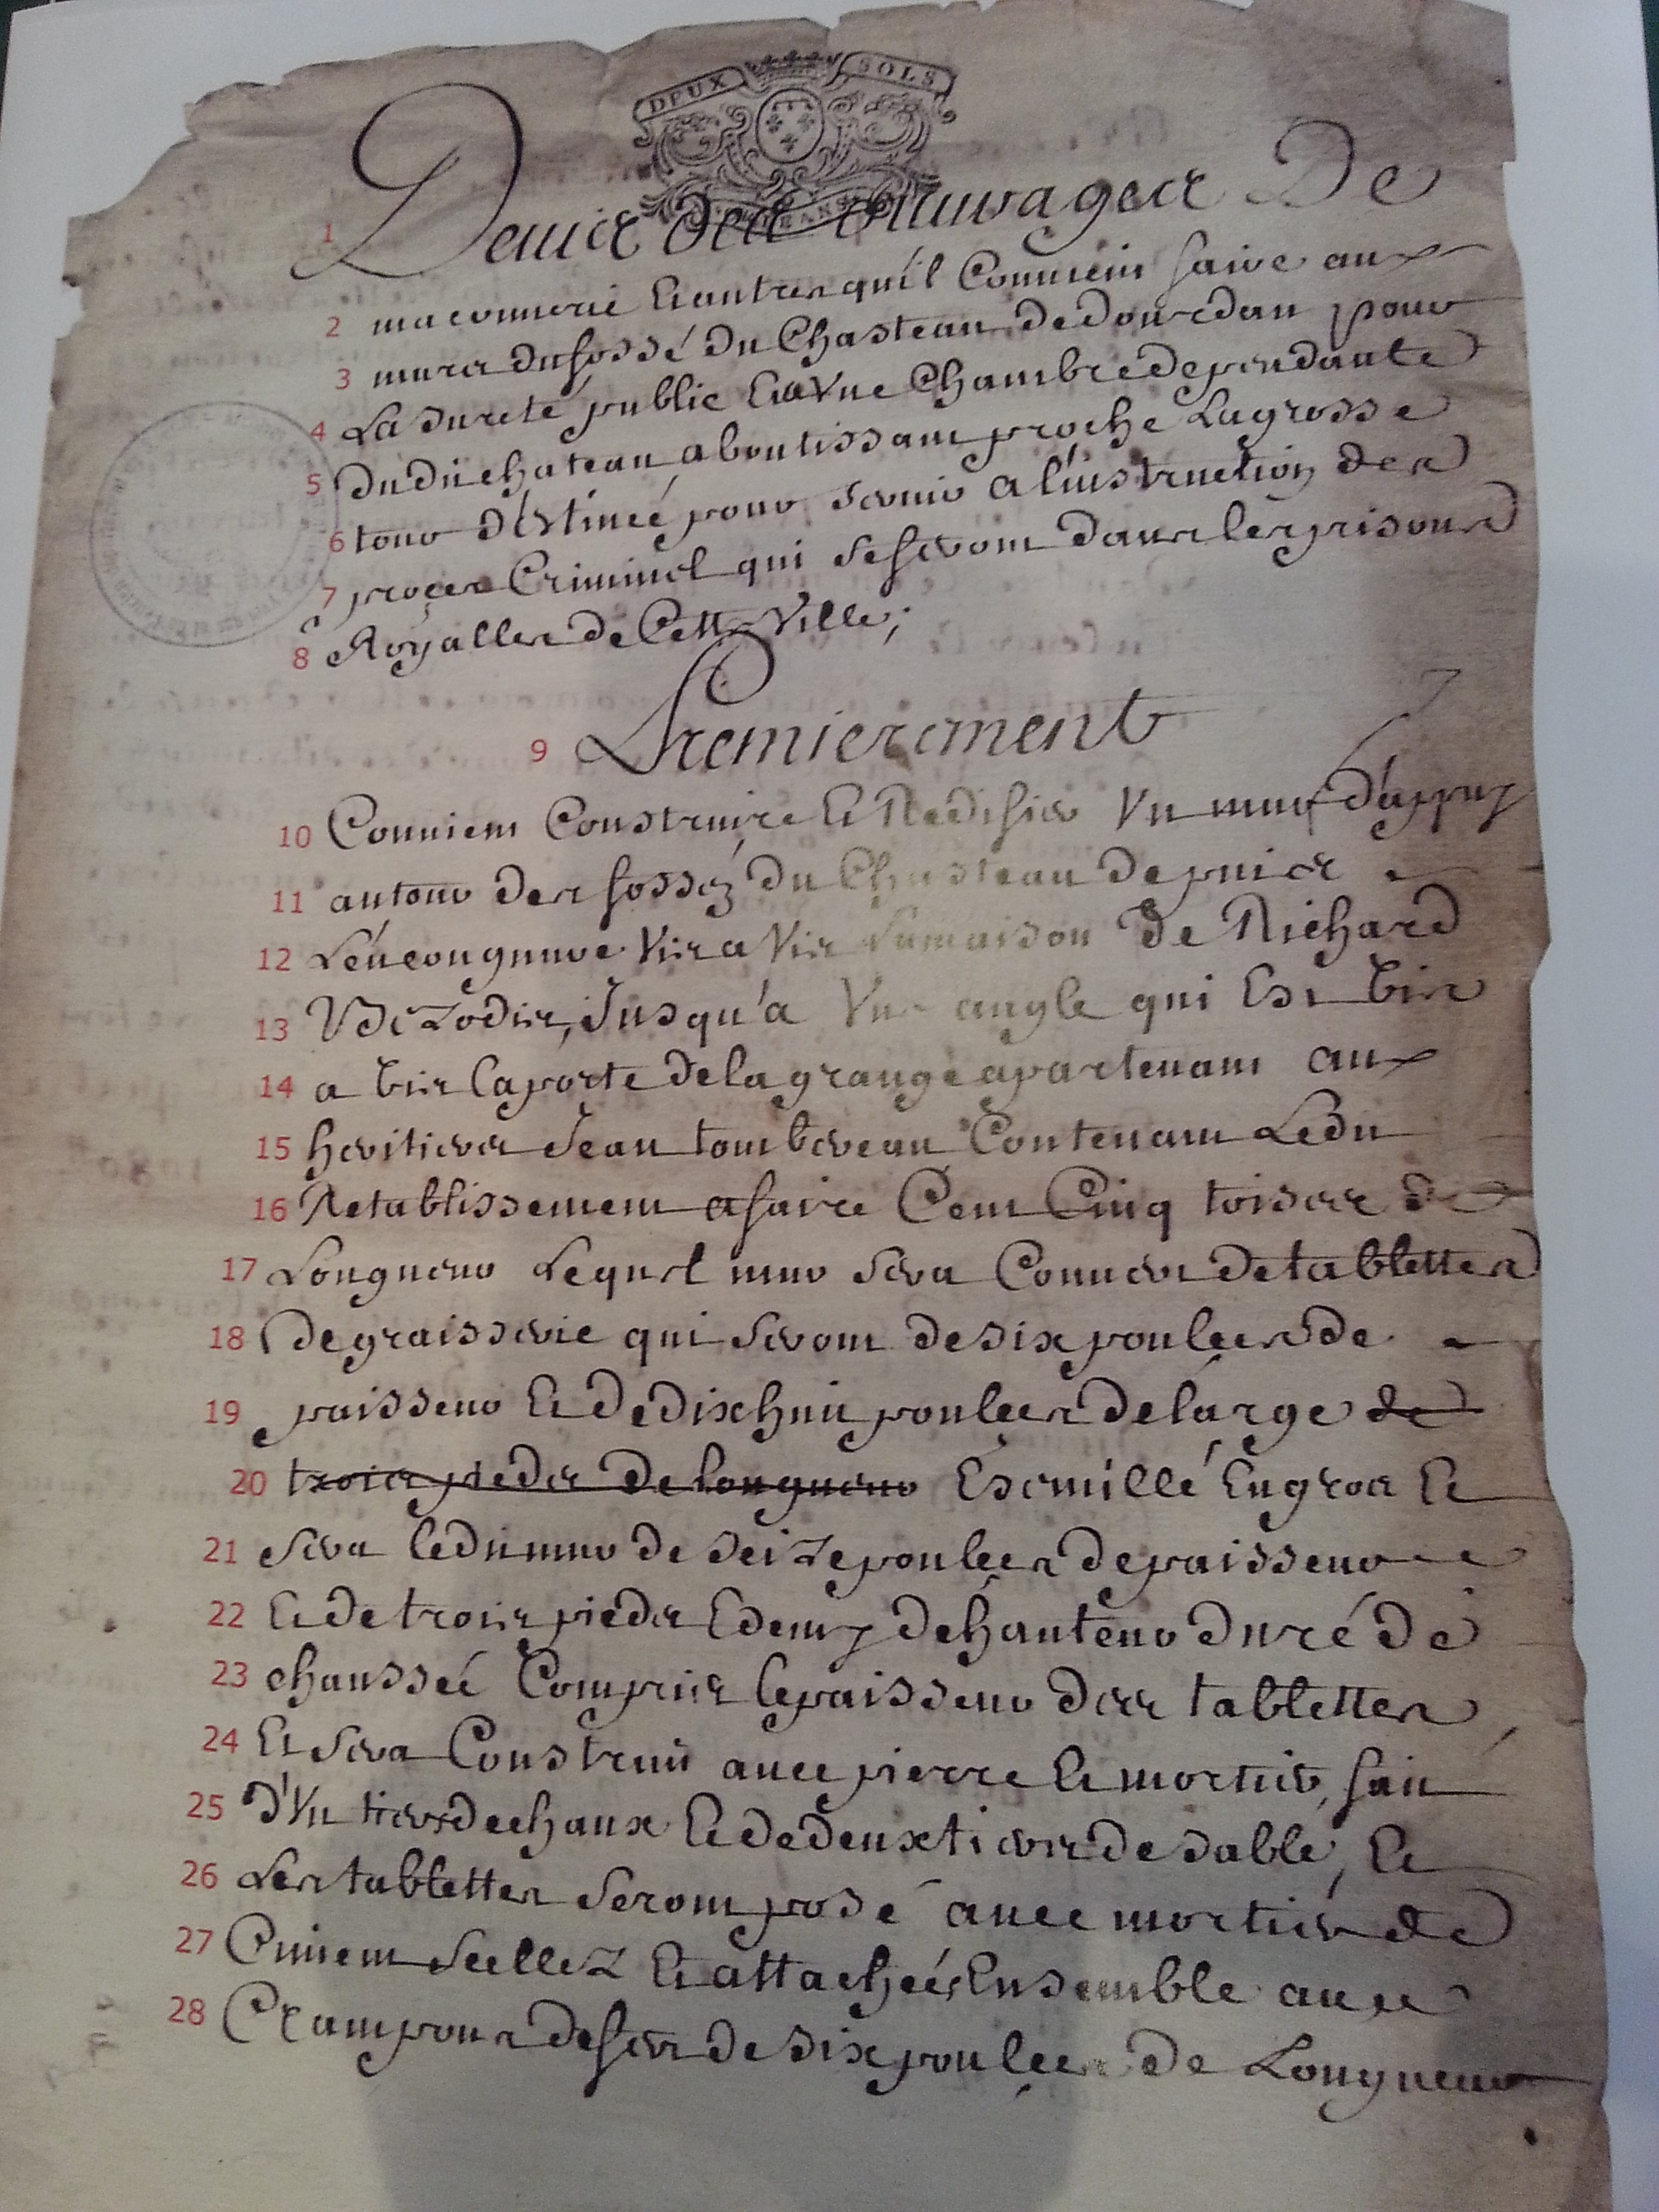 DEUX SOLS
1 Devis des ouvrages De
2 maconnerie Et autres qu'il Convient faire aux
3 murs du fossé du Chasteau de dourdan pour
4 La sureté public Et a Vne Chambre dependante
5 du dit chateau aboutissant proche La grosse
6 tour destineé pour servir a l'instruction des
7 proces Criminel qui se feront dans les prisons
8 Royalles de Cette Ville;
9 Premierement
10 Convient Construire Et Redifier Vn mur d'appuy
11 autour des fossez du Chasteau depuis
12 L'encougnure Vis a Vis La maison De Richard
13 Jusqu'a Vn angle qui Est Vis
14 a Vis La porte de la grange apartenant aux
15 heritiers Jean tombereau Contenant Ledit
16 Retablissement a faire Cent Cinq toises de
17 Longueur Lequel mur sera Couvert de tablettes
18 de graisserie qui seront de six poulces de
19 paisseur Et de dix huit poulces de large de
20 trois pieds de longueur Esemillé En gros Et
21 sera ledit mur de seize poulces de paisseur
22 Et de trois pieds Et demy de hauteur du ré de
23 chausseé Compris l'epaisseur des tablettes
24 Et sera Construit avec pierre Et mortier, fait
25 d'Vn tiers de chaux Et de deux tiers de sable, Et
26 Les tablettes seront posé avec mortier de
27 Ciment scellez Et attachées Ensemble avec
28 Crampons de fer de six poulces de Longueur